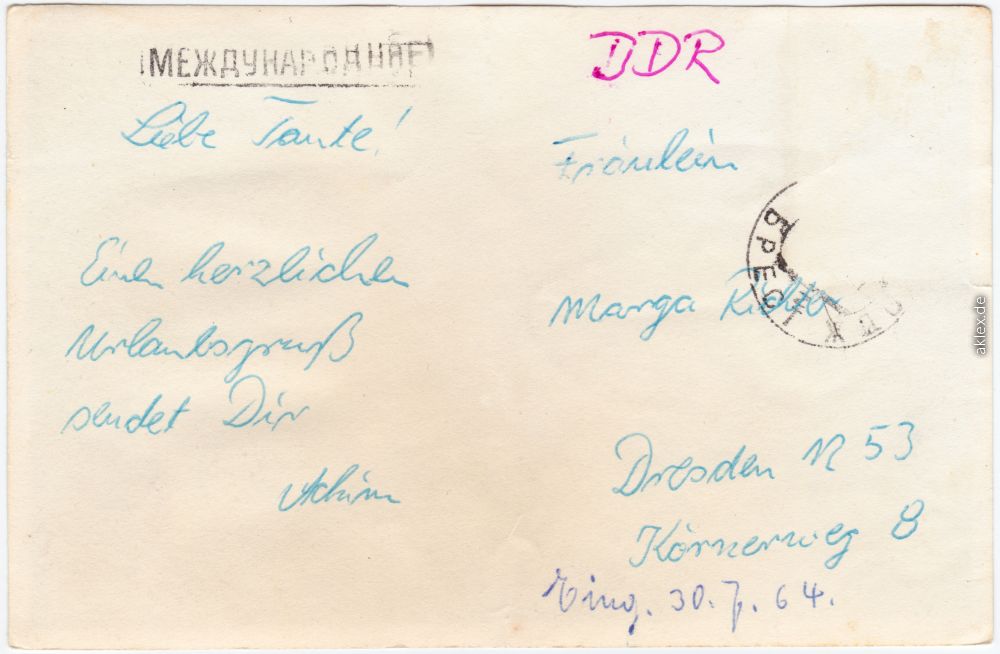 МЕЖДУНАРОДНОЕ
DDR
Liebe Tante!
Einen herzlichen
Urlaubsgruß
sendet Dir
Achim
Fräulein
Marga Richter
Dresden N 53
Körnerweg 8
Eing. 30.7.64.
БРЕСТ
aklex.de